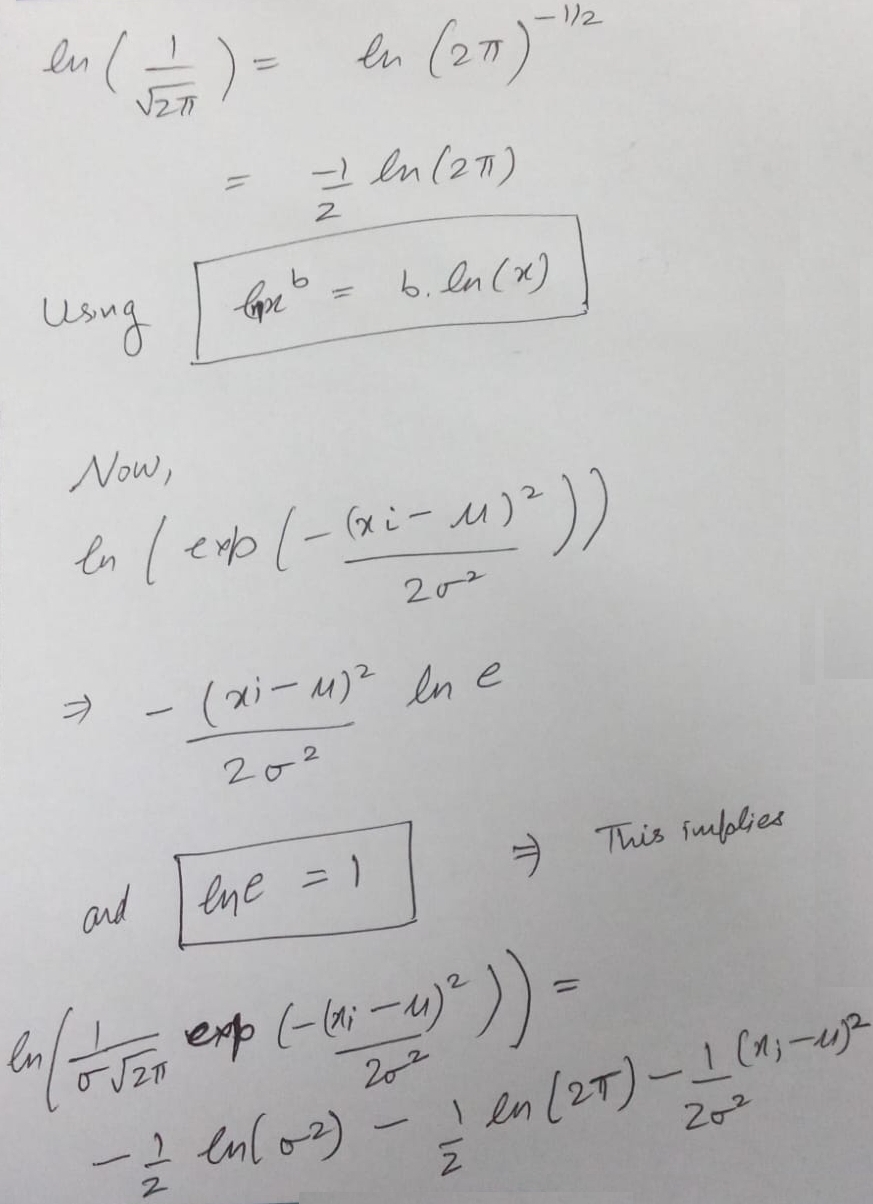 ln(1/√2π) = ln(2π)^-1/2
= -1/2 ln(2π)
Using ln x^b = b. ln(x)
Now,
ln(exp(-(xi-μ)²/2σ²))
⇒ -(xi-μ)²/2σ² ln e
and ln e = 1 ⇒ This implies
ln(1/σ√2π exp(-(xi-μ)²/2σ²)) =
-1/2 ln(σ²) - 1/2 ln(2π) - 1/2σ² (xi-μ)²